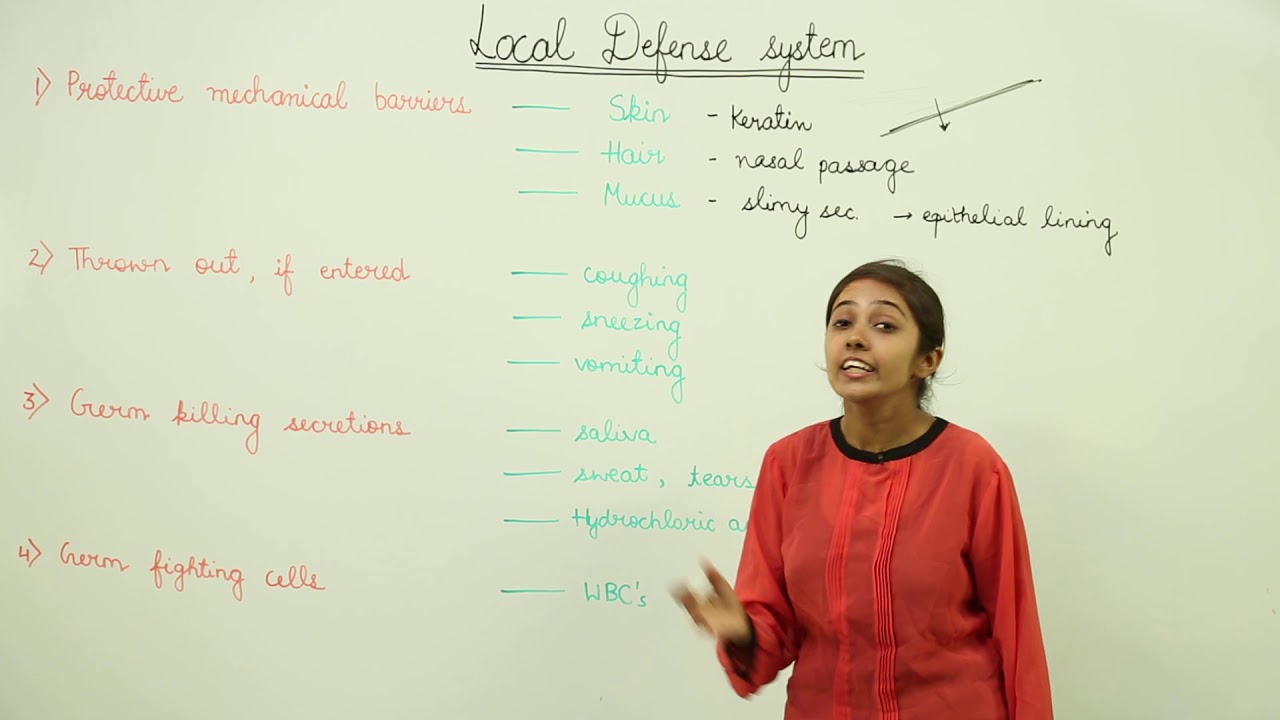 Local Defense system
1) Protective mechanical barriers — Skin - Keratin
— Hair - nasal passage
— Mucus - slimy sec. → epithelial lining
2) Thrown out, if entered — coughing
— sneezing
— vomiting
3) Germ killing secretions — saliva
— sweat, tears
— Hydrochloric
4) Germ fighting cells — WBC's